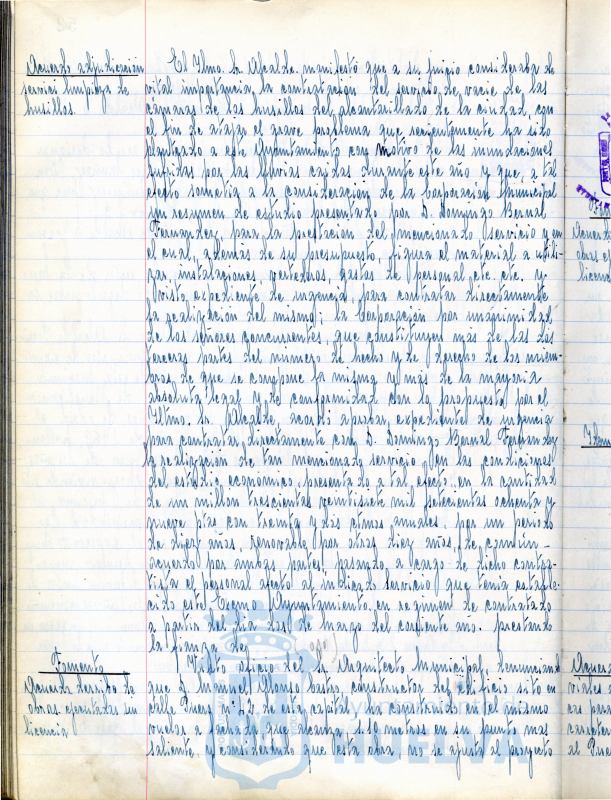 Acuerdo adjudicación
servicio limpieza de
husillos.
El Iltmo. Sr. Alcalde, manifestó que a su juicio consideraba de
vital importancia, la contratación del servicio de vacie de las
cámaras de los husillos del alcantarillado de la ciudad, con
el fin de atajar el grave problema que recientemente ha sido
planteado a este Ayuntamiento con motivo de las inundaciones
sufridas por las lluvias caidas durante este año y que, a tal
efecto sometia a la consideración de la Corporación Municipal
un resumen de estudio presentado por D. Domingo Bernal
Fernandez, para la prestación del mencionado servicio y en
el cual, además de su presupuesto, figura el material a utili-
zar, instalaciones, vertederos, gastos de personal, etc. etc. y
visto expediente de urgencia, para contratar directamente
la realización del mismo; la Corporación por unanimidad
de los señores concurrentes, que constituyen más de las dos
terceras partes del número de hecho y de derecho de los miem-
bros de que se compone la misma y más de la mayoria
absoluta legal y de conformidad con lo propuesto por el
Iltmo. Sr. Alcalde, acordó aprobar, expediente de urgencia
para contratar directamente con D. Domingo Bernal Fernandez
la realización de tan mencionado servicio, en las condiciones
del estudio económico, presentado a tal efecto, en la cantidad
de un millon trescientas veintisiete mil setecientas ochenta y
nueve ptas con treinta y dos ctmos anuales, por un periodo
de diez años, renovable por otros diez años, de común
acuerdo por ambas partes, pasando, a cargo de dicho contra-
tista el personal afecto al indicado servicio que tenia estable-
cido este Excmo Ayuntamiento en regimen de contratado
a partir del dia de Marzo del corriente año. prestando
la fianza de
Fomento
Acuerdo derribo de
obras ejecutadas sin
licencia
Visto oficio del Arquitecto Municipal, denunciando
que D. Manuel Alonso Castro, constructor del edificio sito en
calle Puerto nº 2, de esta capital, ha construido en el mismo
vuelos a fachada que alcanza 1.10 metros en su punto mas
saliente, y considerando que esta obra no se ajusta al proyecto
Acuerdo
obras e
licenc
Acuer
viales
cas par
carrete
al Pue
Ayuntamiento de
HUELVA